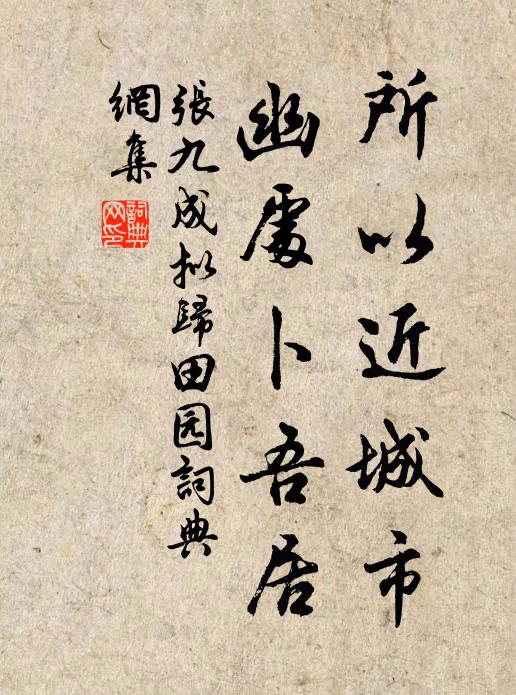 所以近城市
幽處卜吾居
張九成拟歸田园詞典
網集
詞典
网印